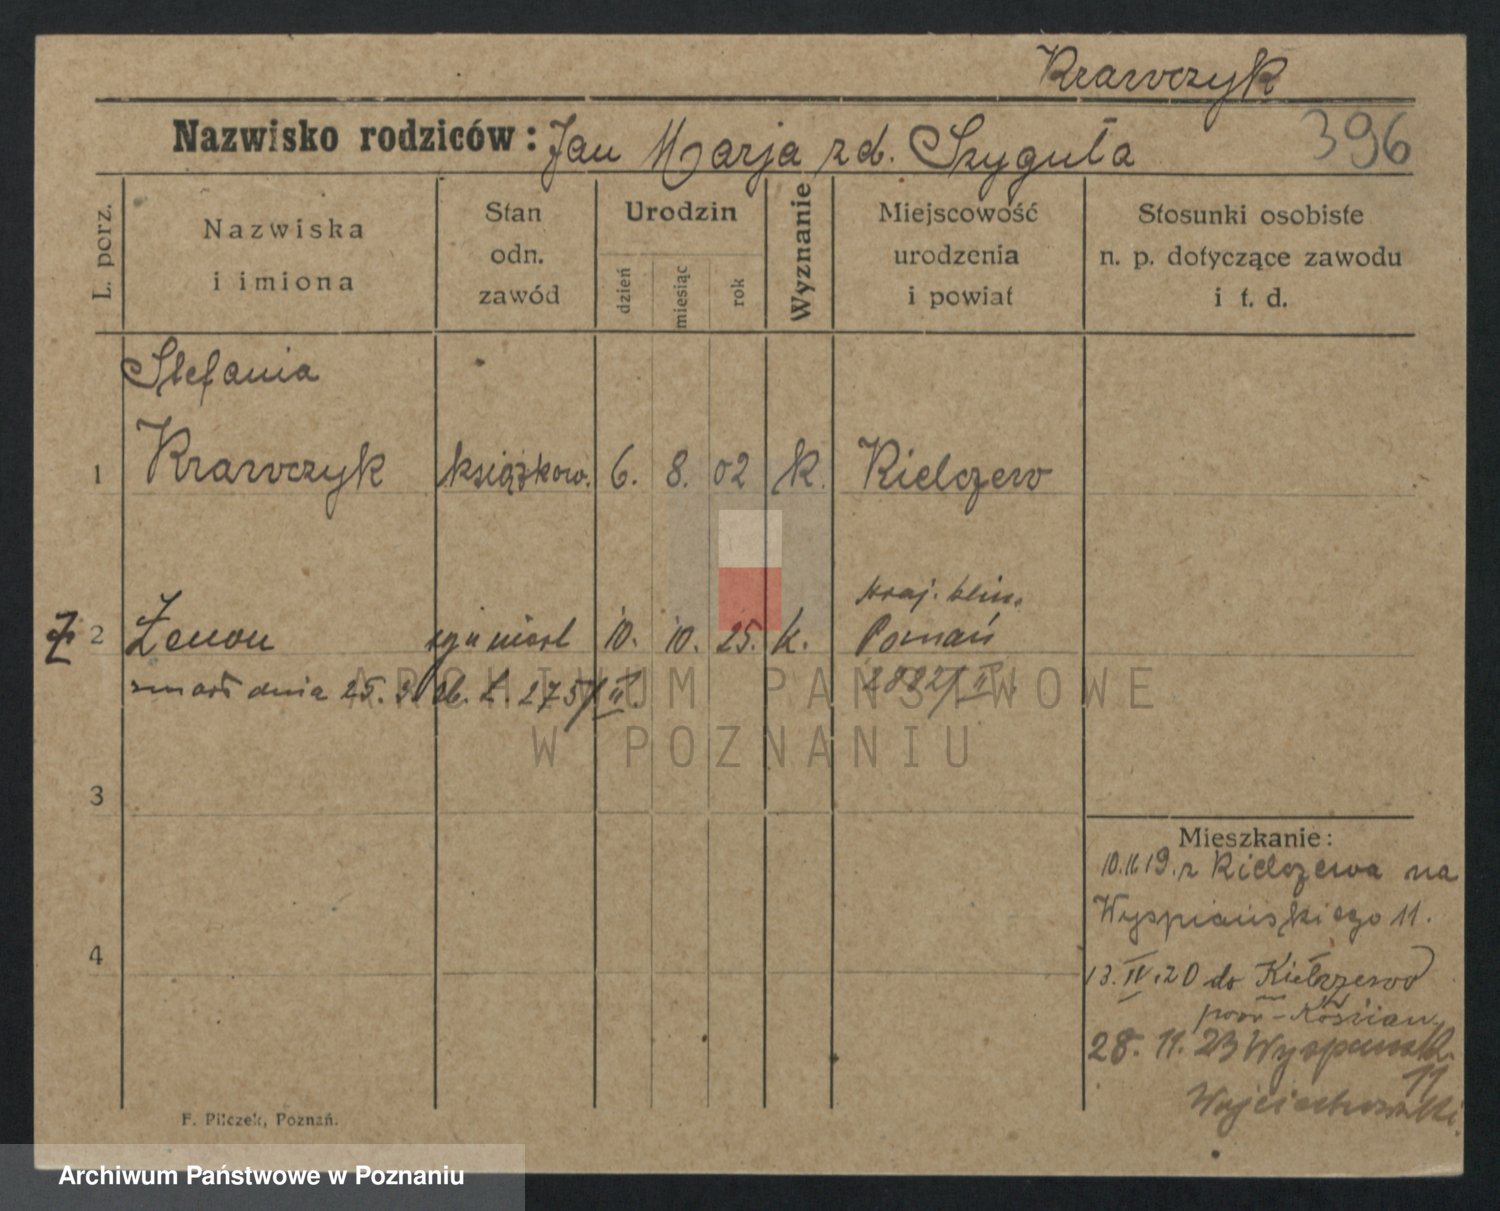 Krawczyk
Nazwisko rodziców: Jan Marja zd. Szyguła
396
L. porz.
Nazwiska i imiona
Stan odn. zawód
Urodzin
dzień
miesiąc
rok
Wyznanie
Miejscowość urodzenia i powiat
Stosunki osobiste n. p. dotyczące zawodu i t. d.
Stefania
1 Krawczyk książkow. 6. 8. 02 k. Kielczew
2 Zenon 10. 10. 25. k. Poznań
zmarł dnia 25. 26. L. 275/II.
2822/II.
3
4
Mieszkanie:
10.11.19. z Kielczewa na
Wyspiańskiego 11.
13.IV.20 do Kiełczewo
pow-Kościan
28. 11. 23
11
F. Pilczek, Poznań.
ARCHIWUM PAŃSTWOWE
W POZNANIU
Archiwum Państwowe w Poznaniu